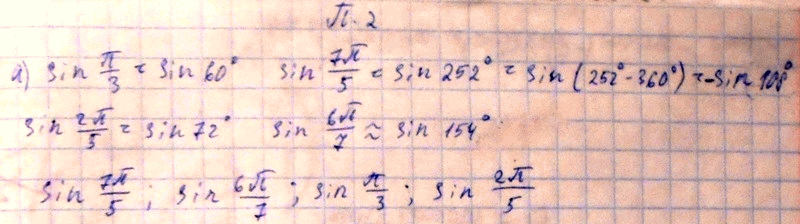 П-2
а) sin π/3 = sin 60° sin 7π/5 = sin 252° = sin (252° - 360°) = -sin 108°
sin 2π/5 = sin 72° sin 6π/7 ≈ sin 154°
sin 7π/5 ; sin 6π/7 ; sin π/3 ; sin 2π/5